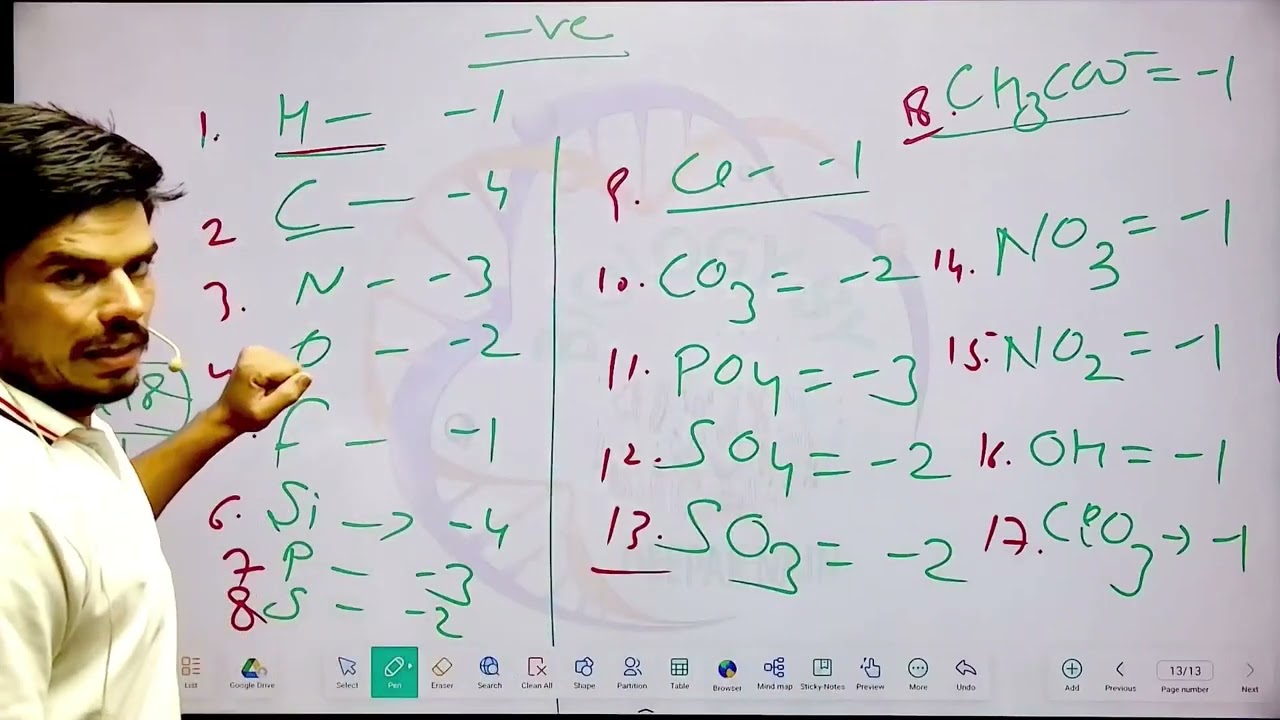 -ve
1. H - -1
2 C - -4
3. N - -3
4. O - -2
F - -1
6. Si -> -4
7 P - -3
8 S - -2
9. Cl - -1
10. CO3 = -2
11. PO4 = -3
12. SO4 = -2
13. SO3 = -2
18. CH3COO⁻ = -1
14. NO3 = -1
15. NO2 = -1
16. OH = -1
17. ClO3 → -1
List
Google Drive
Select
Pen
Eraser
Search
Clean All
Shape
Partition
Table
Browser
Mind map
Sticky Notes
Preview
More
Undo
Add
Previous
13/13
Page number
Next